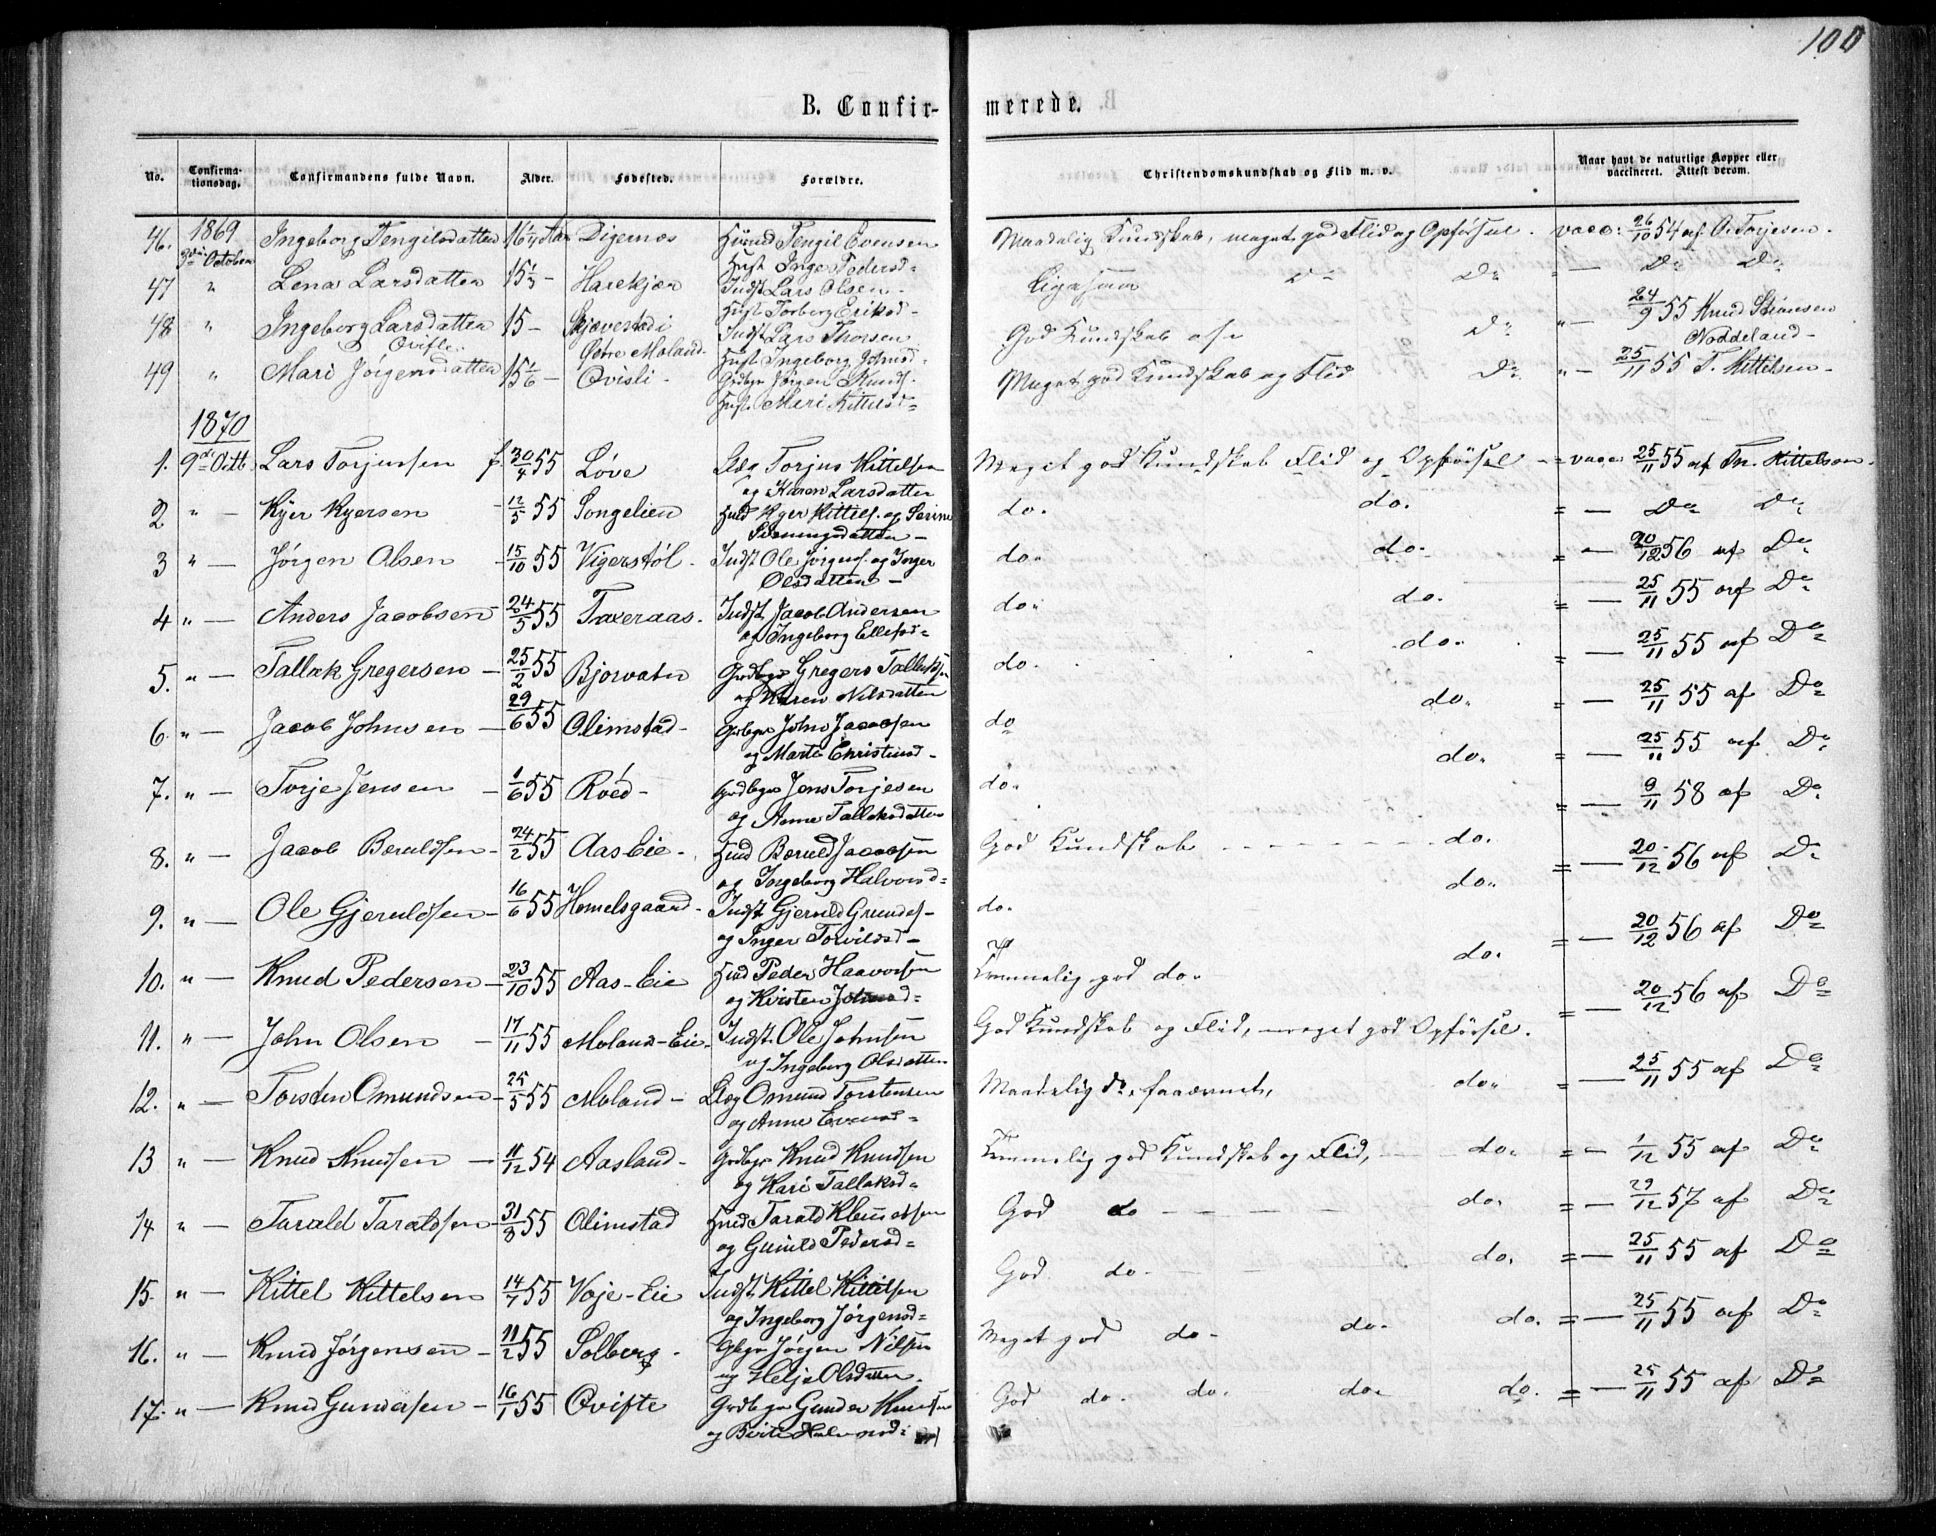 100
B. Confirmerede.
No. Confirmationsdag. Confirmandens fulde Navn. Alder. Fødested. Forældre. Christendomskundskab og Flid m. v. Naar havt de naturlige Kopper eller vaccineret. Attest derom.
46. 1869 9de October Ingeborg Tengilsdatter 16 1/4 Aar Digernæs Huusmd Tengil Evensen Maadelig Kundskab, meget god Flid og Opførsel. vacc: 26/10 54 af O. Terjesen.
Hust. Inge Pedersd-
47 " Lena Larsdatter 15 1/2 - Harekjær Indst Lars Olsen - Ligesaa Do Do " — Do Do
Hust Torborg Eriksd-
48 " Ingeborg Larsdatter 15 - Skjævestad i Indst Lars Thorsen God Kundskab Do " - 24/9 55 Knud
Ovifte Øvre Moland- Hust Ingeborg Johnsd- Noddeland-
49 " Mari Jørgensdatter 15 5/6 - Ovisli - Grdbgr Jørgen Knuds. Meget god Kundskab og Flid Do " - 25/11 55 T. Kittelsen -
Hust Mari Kittelsd-
1870
1. 9de Octb Lars Torjussen f. 30/4 55 Løve Læg Torjus Kittelsen Meget god Kundskab Flid og Opførsel = vacc 25/11 55 af Tn. Kittelsen.
og Karen Larsdatter
2 " - Kyer Kyersen - 12/5 55 Songelien Husd Kyer Kittels. og Serine do. do. = — Do Do
3 " — Jørgen Olsen - 15/10 55 Vigerstøl - Indst Ole Jørgens. og Inger do - do - = — 20/12 56 af Do
Olsdatter —
4 " — Anders Jacobsen - 24/5 55 Taxeraas. Indst Jacob Andersen do. do. = — 25/11 55 af Do
og Ingeborg Ellefsd-
5. " — Tallak Gregersen - 25/2 55 Bjorvatn Grdbgr Gregers Tallaksen do. do. = — 25/11 55 af Do
og Karen Nilsdatter
6 " — Jacob Johnsen - 29/6 55 Olimstad - Grdbgr John Jacobsen do do. = — 25/11 55 af Do
og Marte Christensd -
7. " — Torje Jensen - 1/6 55 Røed - Grdbgr Jens Torjesen do. do. = — 25/11 55 af Do
og Anne Tallaksdatter
8. " — Jacob Beruldsen - 24/2 55 Aas Eie - Husd Beruld Jacobsen God Kundskab - - - do. = — 9/11 58 af Do
og Ingeborg Halvorsd-
9. " — Ole Gjeruldsen - 16/6 55 Homelsgaard - Indst Gjeruld Grundes - do. do. = — 20/12 56 af Do
og Inger Torvildsd -
10. " — Knud Pedersen - 23/10 55 Aas - Eie Husd Peder Haavorsen Temmelig god do - do. = — 20/12 56 af Do
og Kirsten Johnsd-
11. " — John Olsen - 17/11 55 Moland - Eie - Indst. Ole Johnsen God Kundskab og Flid, meget god Opførsel. = — 20/12 56 af Do
og Ingeborg Olsdatter
12. " — Torsten Omundsen - 25/5 55 Moland - Læg Omund Torstensen Maadelig do, do. = — 25/11 55 af Do
og Anne Evensd-
13 " — Knud Knudsen - 11/12 54 Aasland - Grdbgr Knud Knudsen Temmelig god Kundskab og Flid, do. = - 1/12 55 af Do
og Kari Tallaksd-
14 " — Tarald Taraldsen - 31/8 55 Olimstad Husd Tarald God do - - - do. = — 29/12 57 af Do
og Gunild Pedersd-
15. " — Kittel Kittelsen 14/7 55 Voje - Eie Indst. Kittel Kittelsen God do - - do. = — 25/11 55 af Do
og Ingeborg Jørgensd-
16. " — Knud Jørgensen - 11/2 55 Solberg - Gbgr Jørgen Nilsen Meget god do - do. do. = — 25/11 55 af Do
og Helje Olsdatter.
17. " — Knud Gundersen - 16/1 55 Ovifte Grdbgr Gunder Knudsen God do. do. do. do. = — 25/11 55 af Do
og Berte Halvorsd-